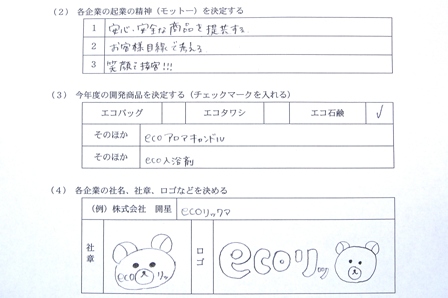 (2) 各企業の起業の精神(モットー)を決定する
1 安心・安全な商品を提供する
2 お客様目線で考える
3 笑顔で接客!!!
(3) 今年度の開発商品を決定する(チェックマークを入れる)
エコバッグ エコタワシ エコ石鹸 ✓
そのほか ecoアロマキャンドル
そのほか eco入浴剤
(4) 各企業の社名、社章、ロゴなどを決める
(例)株式会社 開星 ecoリックマ
社章 ecoリッ ロゴ ecoリ